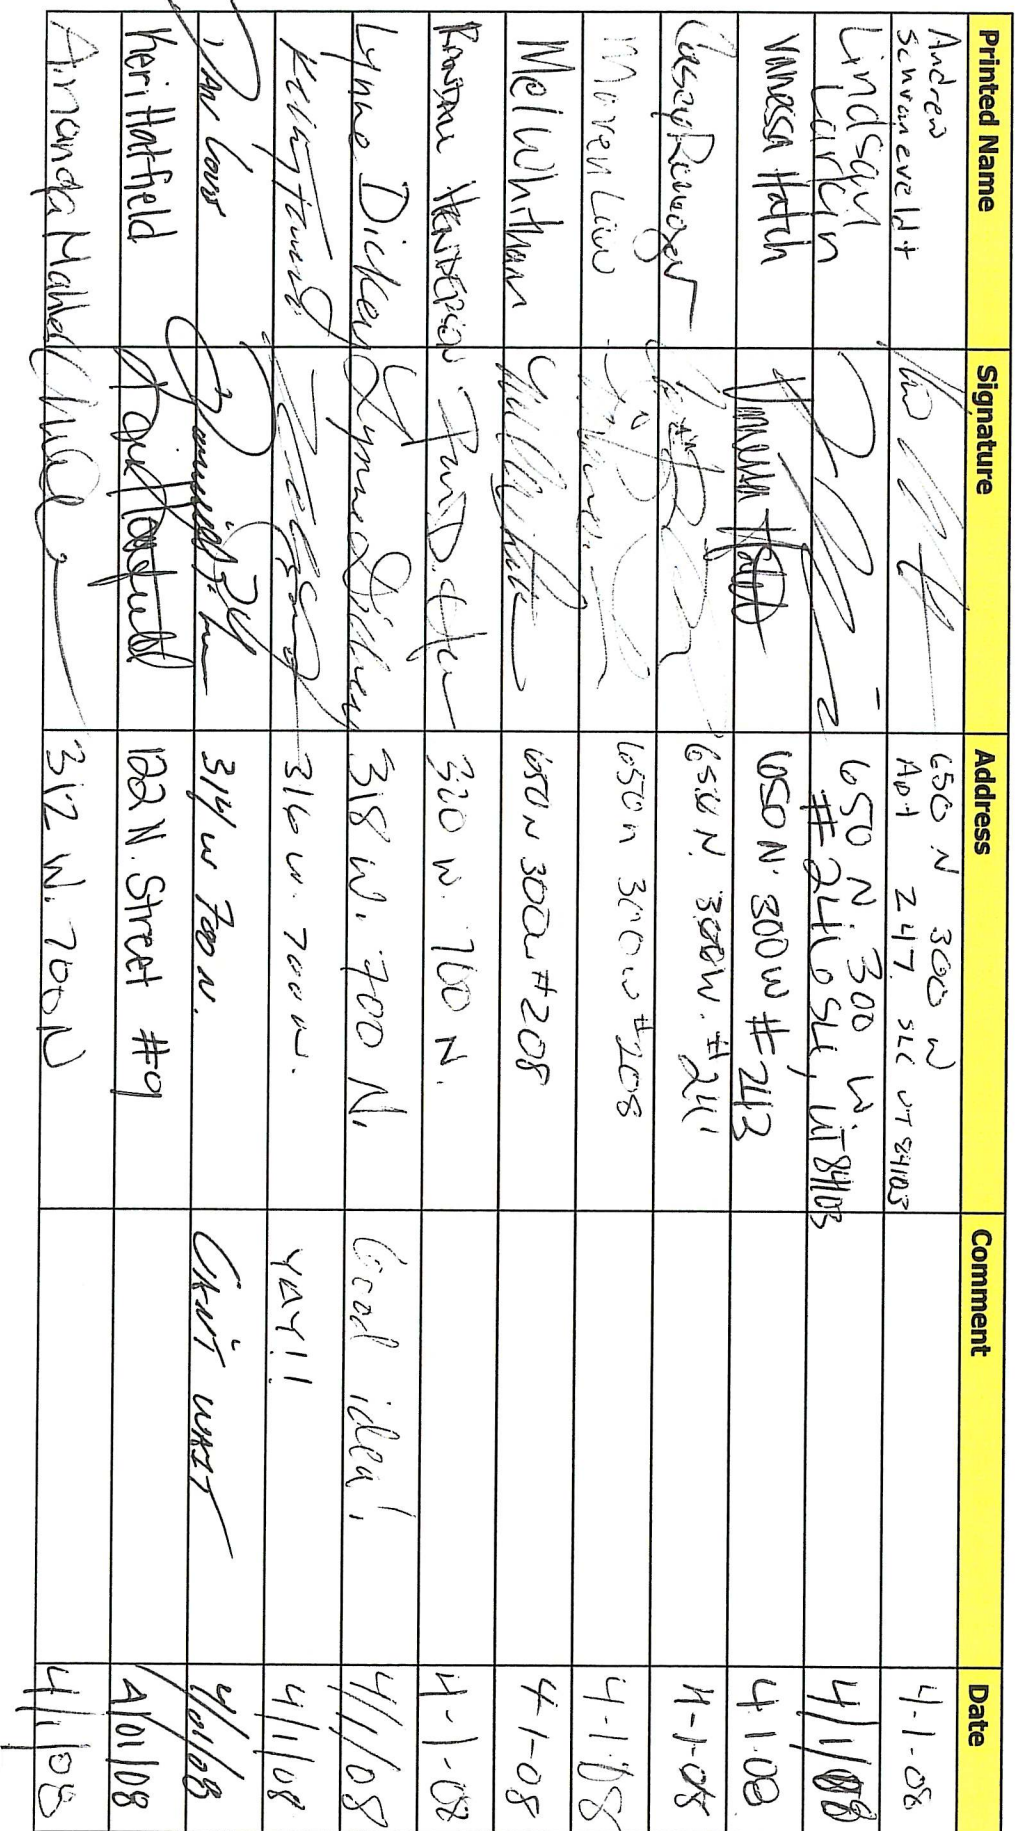 Printed Name Signature Address Comment Date
Andrew
Schvaneveldt 650 N 300 W
Apt 247 SLC UT 84103 4-1-08
Lindsay
Larkin 650 N. 300 W
#246 SLC, UT 84103 4/1/08
Vanessa Hatch Vanessa Hatch 650 N 300 W #243 4.1.08
Casey 650 N. 300W. #241 4-1-08
650 n 300 w #208 4-1-08
Mel Whitham 650 N 300 w #208 4-1-08
Randall Henderson 320 W. 700 N. 4-1-08
Lynne Dickey Lynne Dickey 318 W. 700 N. Good idea! 4/1/08
316 W. 700 N. YAY!! 4/1/08
Dan 314 W 700 N. CAN'T WAIT 4/01/08
Keri Hatfield Keri Hatfield 122 N. Street #9 4/01/08
Amanda 312 W. 700 N 4/1/08